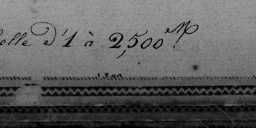 elle d'1 à 2,500 M.